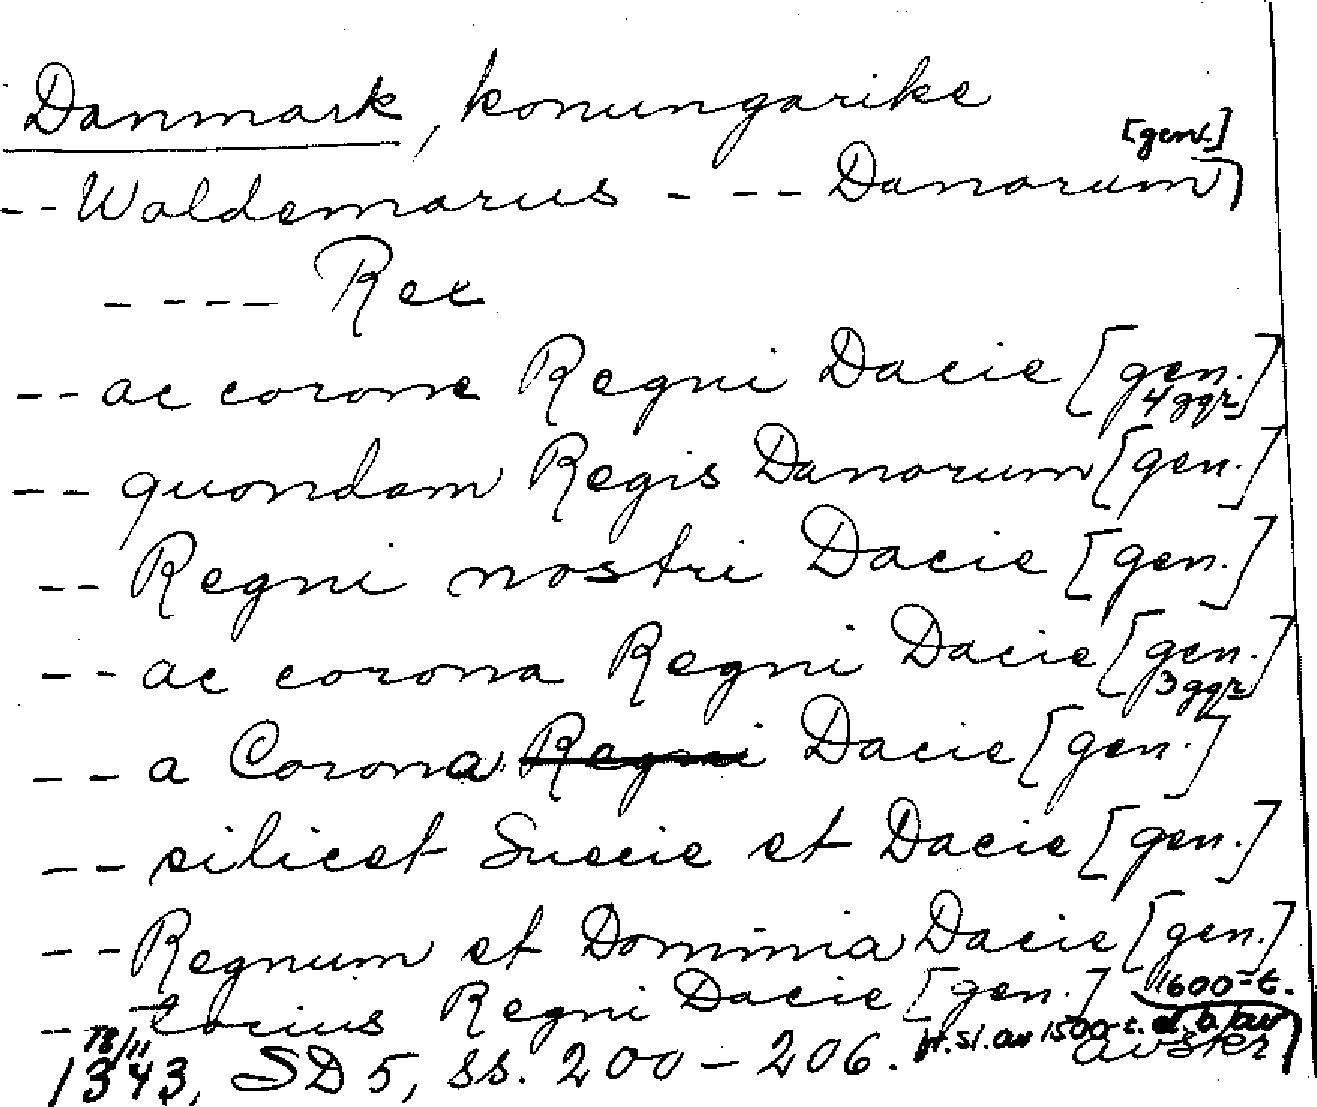 Danmark, konungarike
-- Waldemarus - -- Danorum [gen.]
---- Rex
-- ac corone Regni Dacie [gen. 4 ggr]
-- quondam Regis Danorum [gen.]
-- Regni nostri Dacie [gen.]
-- ac corona Regni Dacie [gen. 3 ggr]
-- a Corona Regni Dacie [gen.]
-- silicet Suecie et Dacie [gen.]
-- Regnum et Dominia Dacie [gen.]
-- tocius Regni Dacie [gen.] 1600-t.
18/11 1343, SD 5, ss. 200-206. sl. av 1500-t. el. b. av avskr